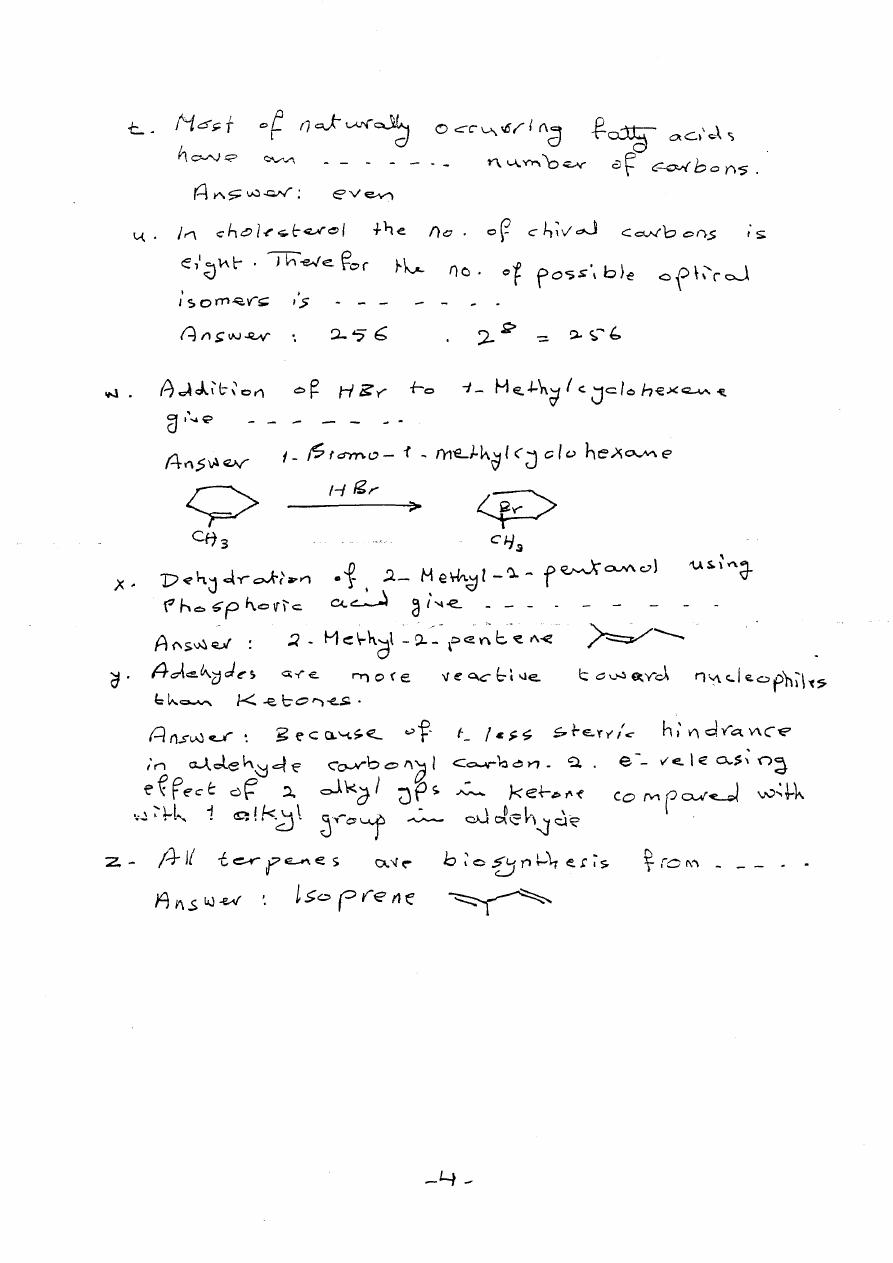 t. Most of naturally occurring fatty acids
have an - - - - - - - number of carbons.
Answer: even
u. In cholesterol the no. of chiral carbons is
eight. Therefor the no. of possible optical
isomers is - - - - - - -.
Answer : 256 . 2⁸ = 256
w. Addition of HBr to 1-Methylcyclohexene
give - - - - - - - -
Answer 1-Bromo-1-methylcyclohexane
HBr
Br
CH3 CH3
x. Dehydration of 2-Methyl-2-pentanol using
Phosphoric acid give - - - - - - - - - -
Answer : 2-Methyl-2-pentene
y. Adehydes are more reactive toward nucleophiles
than Ketones.
Answer : Because of 1_ less sterric hindrance
in aldehyde carbonyl carbon. 2. e- releasing
effect of 2 alkyl gps in Ketone compared with
with 1 alkyl group in aldehyde
z- All terpenes are biosynthesis from - - - - -
Answer : Isoprene
-4-